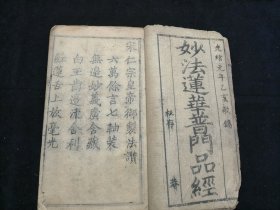 光緒元年乙亥敬鐫
妙法蓮華普門品經
宋仁宗皇帝御製法讚
六萬餘言七軸裝
無邊妙義廣含藏
白玉齒邊流舍利
紅蓮舌上放毫光